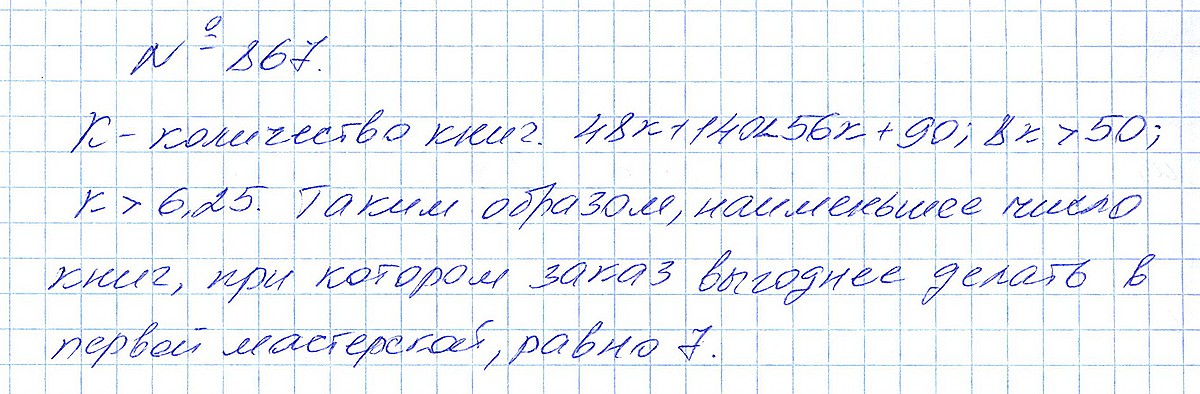 № 867.
К - количество книг. 48к+140<56к+90; 8к>50;
к>6,25. Таким образом, наименьшее число
книг, при котором заказ выгоднее делать в
первой мастерской, равно 7.